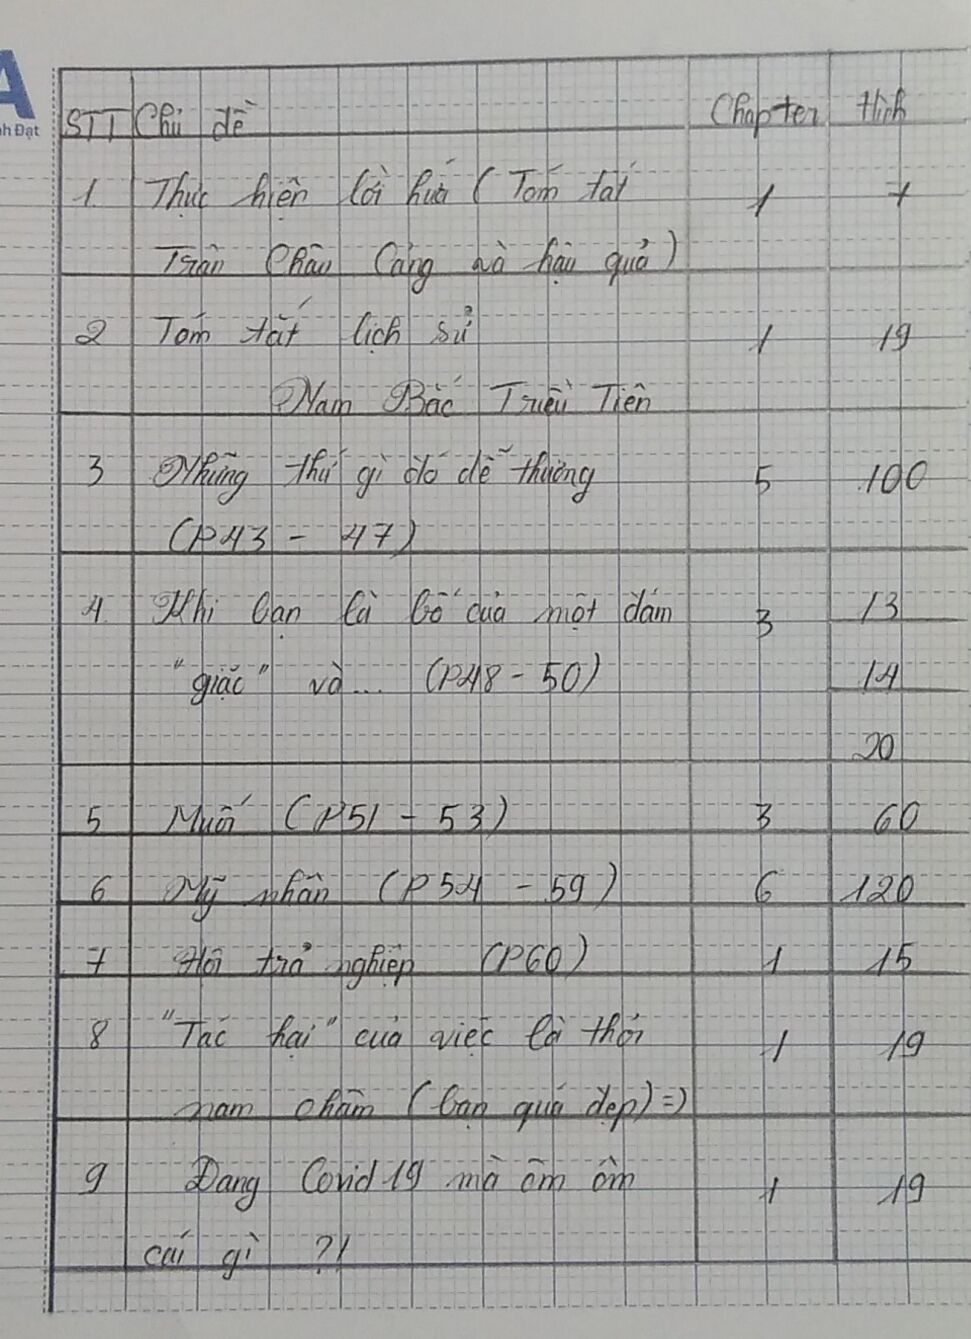 A
nh Đạt
STT Chủ đề Chapter Hình
1 Thực hiện lời hứa (Tóm tắt 1 7
Trân Châu Cảng và hậu quả)
2 Tóm tắt lịch sử 1 19
Nam Bắc Triều Tiên
3 Những thứ gì đó dễ thương 5 100
(P43 - 47)
4 Khi bạn là bố của một đám 3 13
"giặc" và... (P48 - 50) 14
20
5 Muối (P51 - 53) 3 60
6 Mỹ nhân (P54 - 59) 6 120
7 Hội trả nghiệp (P60) 1 15
8 "Tác hại" của việc là thỏi 1 19
nam châm (bạn quá đẹp) =)
9 Đang Covid 19 mà ôm ôm 1 19
cái gì ?!